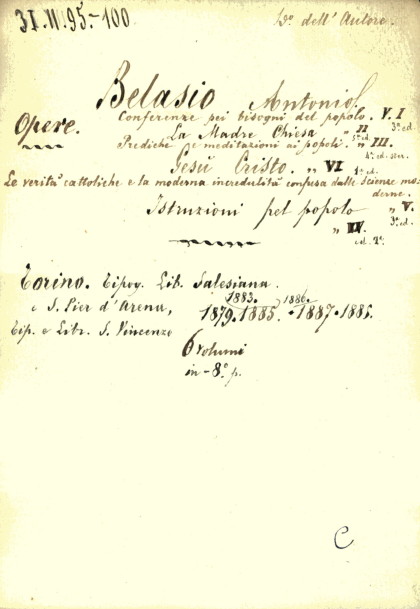 31.IV.95.-100. Do dell'Autore.
Belasio Antonio.
Conferenze pei bisogni del popolo. V. I
3ª ed.
Opere. La Madre Chiesa " II
5ª ed.
Prediche e meditazioni ai popoli. " III.
4ª ed. ster.
Gesù Cristo. " VI
1ª ed.
Le verità cattoliche e la moderna incredulità confusa dalle scienze mo-
derne. " V.
Istruzioni pel popolo 3ª ed.
" IV.
ed. 2ª.
Torino. Tipog. Lib. Salesiana.
e S. Pier d'Arena, 1883. 1886.
1879. 1885. 1887. 1888.
Tip. e Libr. S. Vincenzo
6 volumi
in-8º p.
C